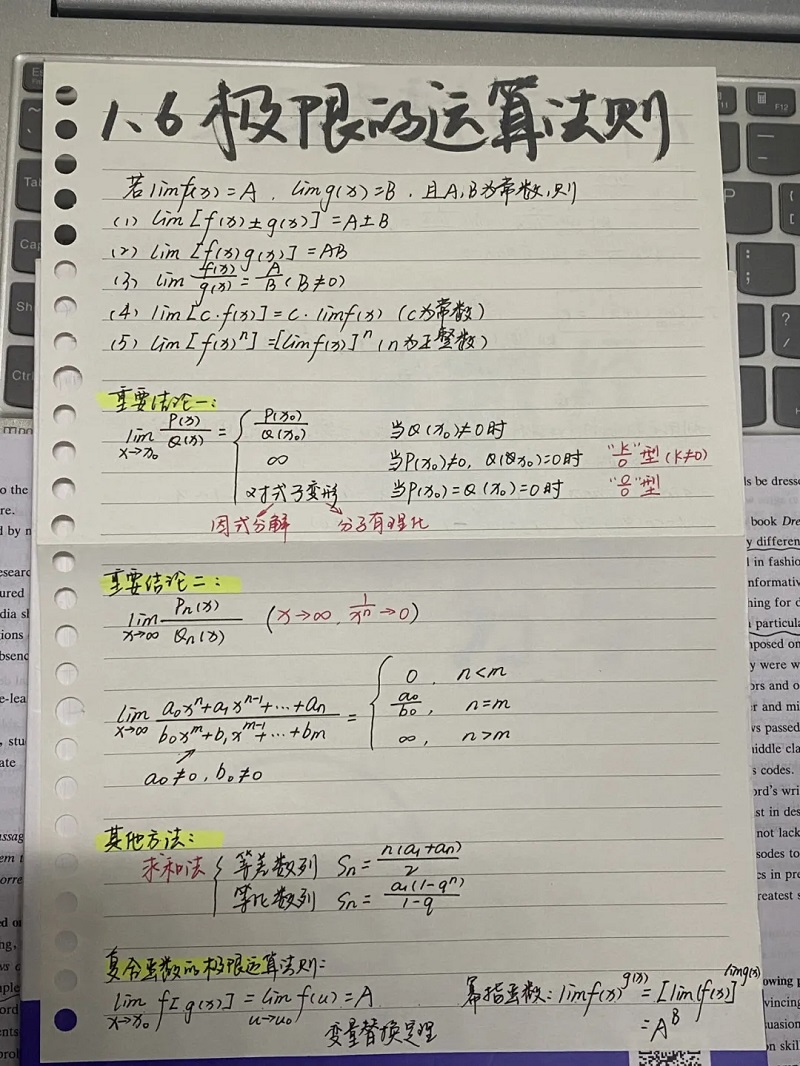 1.6 极限的运算法则
若limf(x)=A, limg(x)=B, 且A,B为常数,则
(1) lim[f(x)±g(x)]=A±B
(2) lim[f(x)g(x)]=AB
(3) lim f(x)/g(x)=A/B(B≠0)
(4) lim[c·f(x)]=c·limf(x) (c为常数)
(5) lim[f(x)^n]=[limf(x)]^n(n为正整数)
重要结论一:
lim x→x₀ P(x)/Q(x) = { P(x₀)/Q(x₀) 当Q(x₀)≠0时
∞ 当P(x₀)≠0, Q(x₀)=0时 "k/0"型(k≠0)
对式子变形 当P(x₀)=Q(x₀)=0时 "0/0"型
因式分解 分子有理化
重要结论二:
lim x→∞ Pn(x)/Qn(x) (x→∞, 1/x^n→0)
lim x→∞ (a₀x^n+a₁x^(n-1)+…+an)/(b₀x^m+b₁x^(m-1)+…+bm) = { 0, n<m
a₀/b₀, n=m
∞, n>m
a₀≠0, b₀≠0
其他方法:
求和法 { 等差数列 Sn=n(a₁+an)/2
等比数列 Sn=a₁(1-q^n)/(1-q)
复合函数的极限运算法则:
lim x→x₀ f[g(x)]=lim u→u₀ f(u)=A
变量替换定理
幂指函数: limf(x)^g(x)=[lim(f(x)]^limg(x)
=A^B